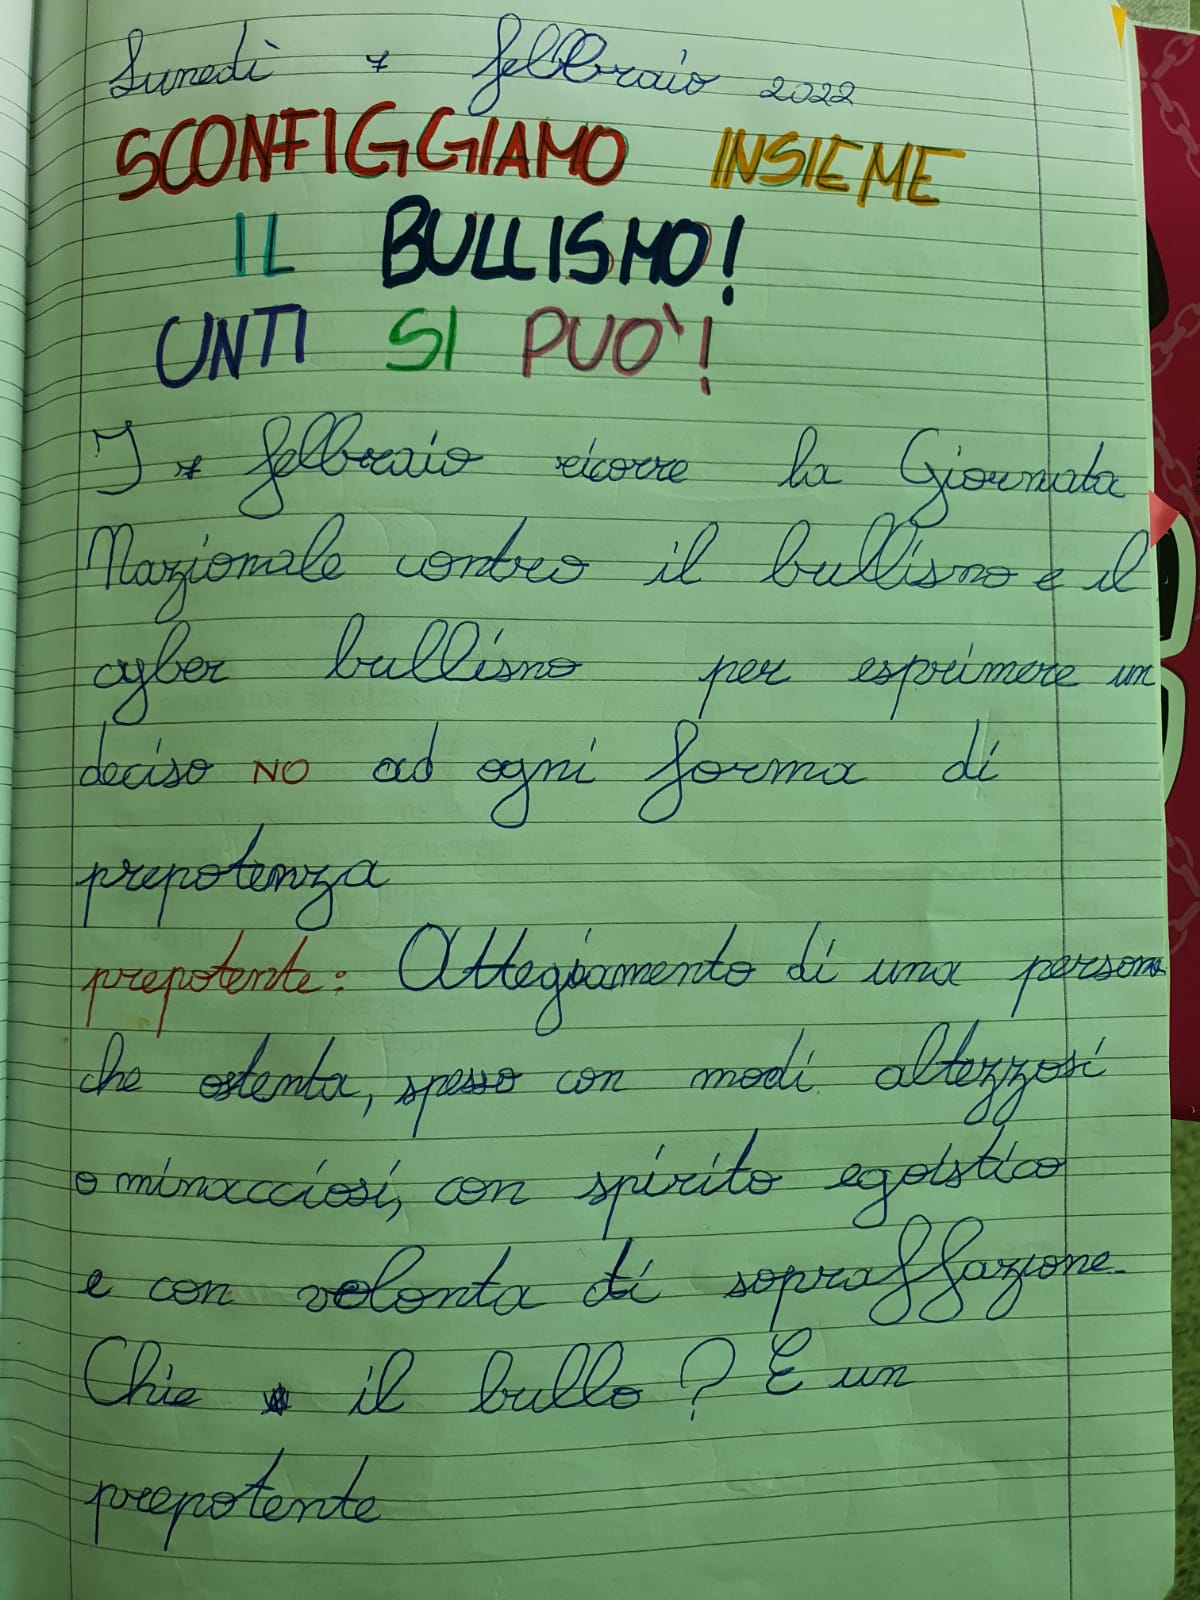 Lunedì 7 febbraio 2022
SCONFIGGIAMO INSIEME
IL BULLISMO!
UNTI SI PUO'!
I 7 febbraio ricorre la Giornata
Nazionale contro il bullismo e il
cyber bullismo per esprimere un
deciso NO ad ogni forma di
prepotenza
prepotente: Attegiamento di una persona
che ostenta, spesso con modi altezzosi
o minacciosi, con spirito egoistico
e con volonta di sopraffazione.
Chie il bullo? E un
prepotente